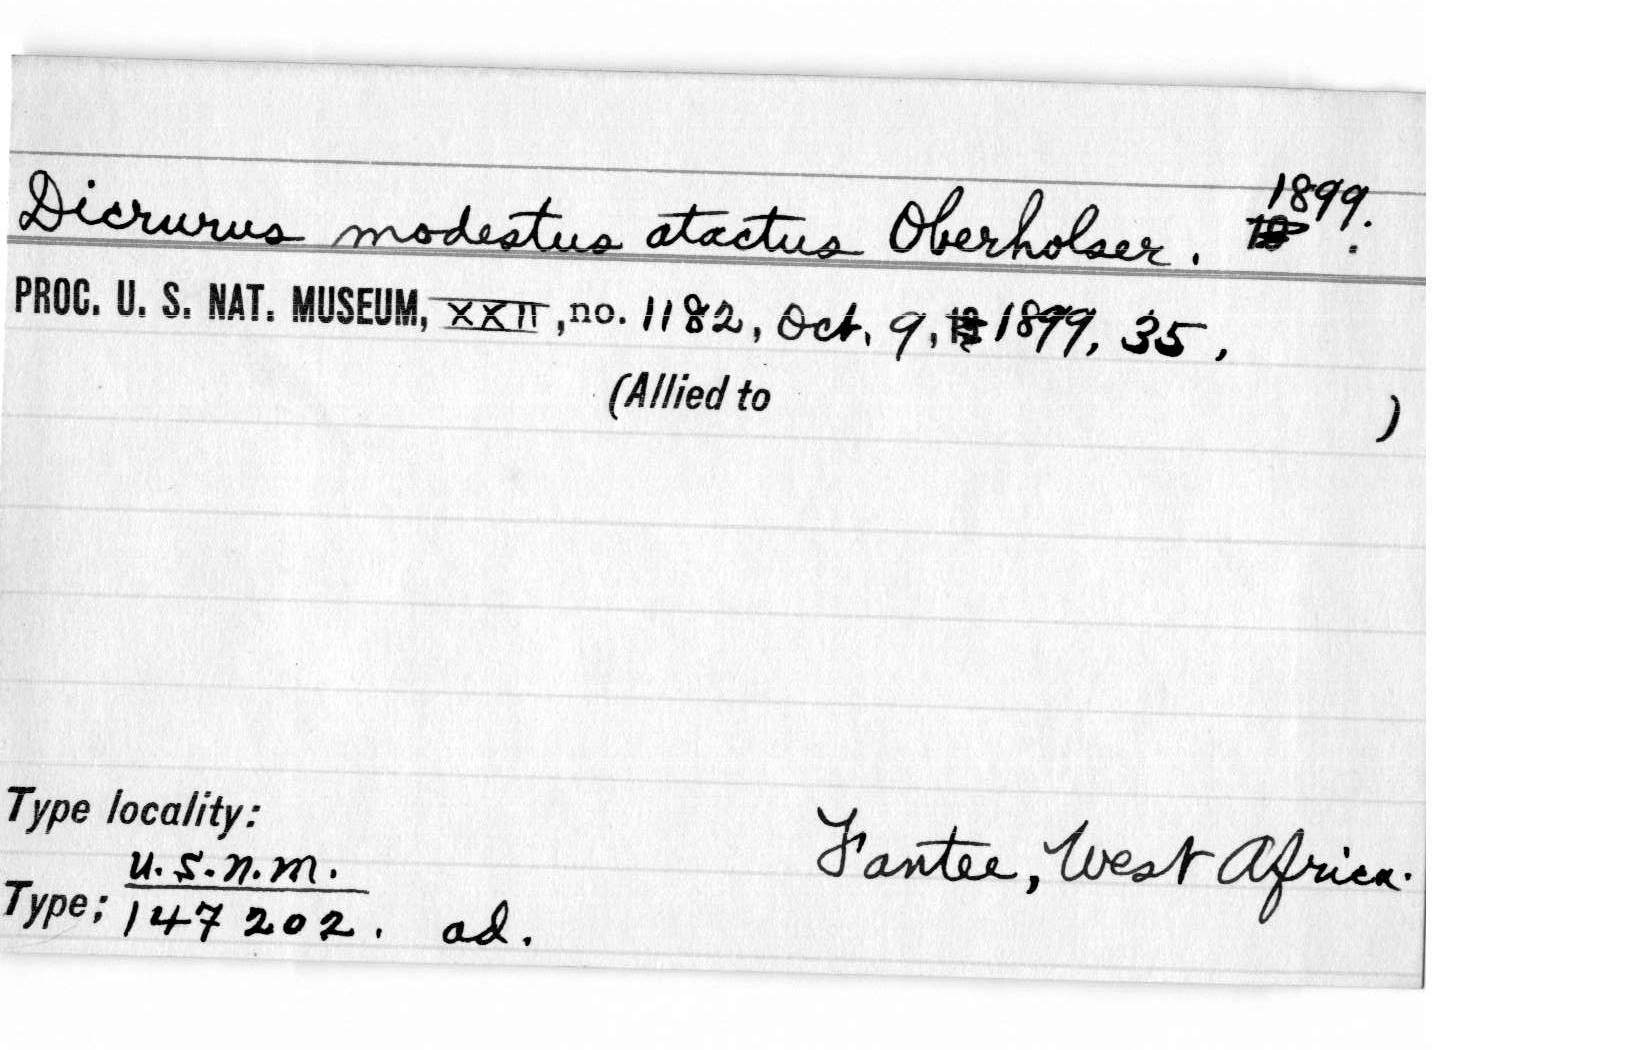 Dicrurus modestus atactus Oberholser. 1899.
PROC. U. S. NAT. MUSEUM, XXII, no. 1182, Oct. 9, 1899, 35,
(Allied to )
Type locality:
Fantee, West Africa.
U.S.N.M.
Type; 147202. ad.